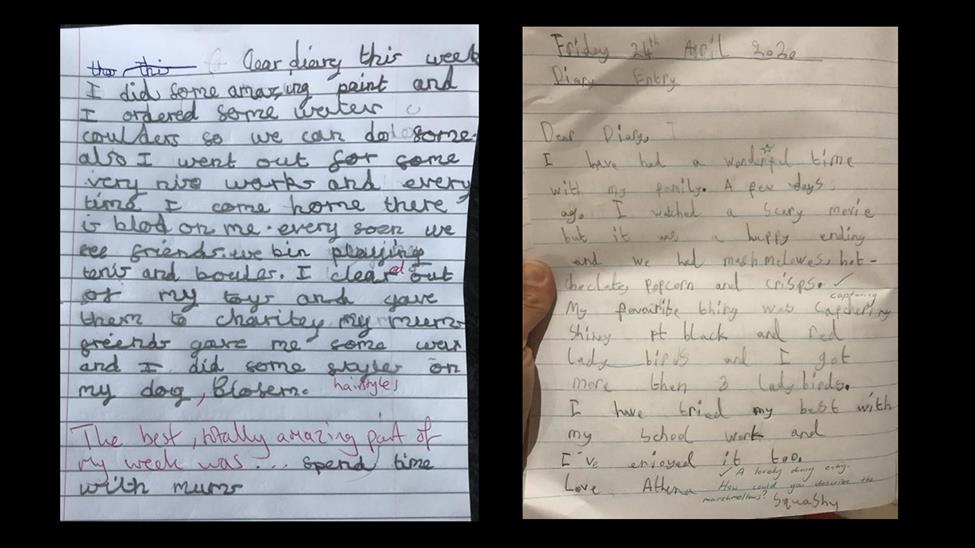 Dear diary this week
I did some amazing paint and
I ordered some
coulders so we can do some.
also I went out for some
very nice and every
time I come home there
is blod on me. every soen we
see friends. we bin playing
tenis and boules. I cleared out
of my toys and gave
them to charitey my mums
freends gave me some
and I did some styles on
hairstyles
my dog, Blosem.
The best, totally amazing part of
my week was... spend time
with mum
Friday 24th April 2020
Diary Entry
Dear Diary,
I have had a wonderful time
with my family. A few days
ago. I watched a scary movie
but it was a happy ending
and we had mashmelowes, hot-
choclate, popcorn and crisps. ✓
capturing
My favourite thing was capchering
shiney black and red
lady birds and I got
more then 3 ladybirds.
I have tried my best with
my school work and
I've enjoyed it too.
✓ A lovely diary entry.
Love Athena How could you describe the
marshmellows? Squashy